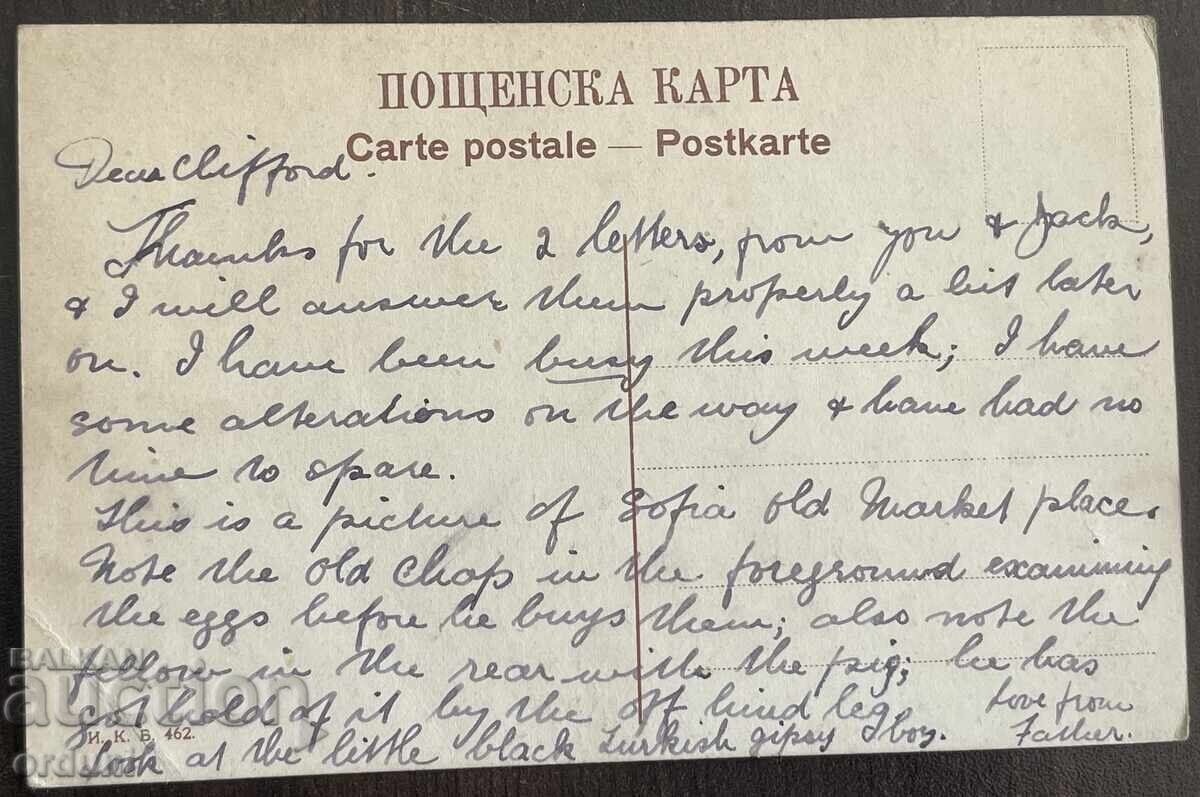 ПОЩЕНСКА КАРТА
Carte postale — Postkarte
Dear Clifford.
Thanks for the 2 letters, from you & Jack,
& I will answer them properly a bit later
on. I have been busy this week; I have
some alterations on the way & have had no
time to spare.
This is a picture of Sofia old Market place.
Note the old chap in the foreground examining
the eggs before he buys them; also note the
fellow in the rear with the pig; he has
got hold of it by the off hind leg
Look at the little black Turkish gipsy boy.
Love from
Father.
И. К. Б. 462.
BALKAN
auction